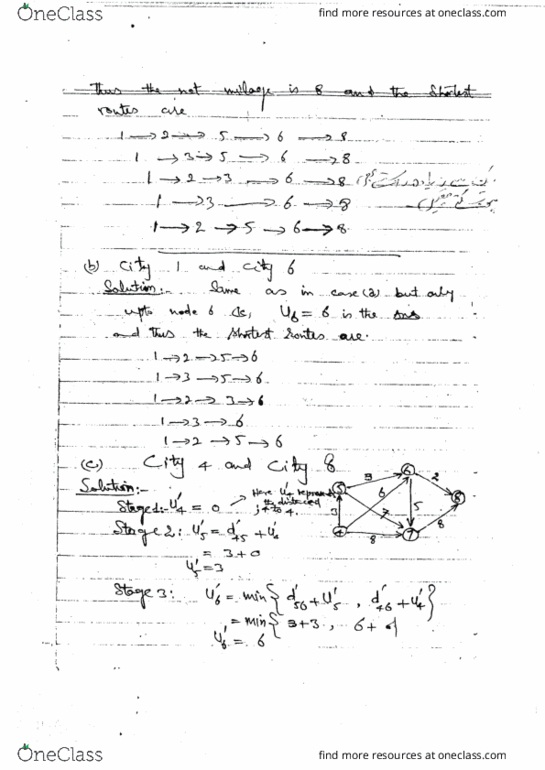 OneClass
find more resources at oneclass.com
Thus the net millage is 8 and the Shortest
routes are
1 → 2 → 5 → 6 → 8
1 → 3 → 5 → 6 → 8
1 → 2 → 3 → 6 → 8
1 → 3 → 6 → 8
1 → 2 → 5 → 6 → 8
(b) City 1 and City 6
Solution:- Same as in case (a) but only
upto node 6 is, U6 = 6 is the Ans
and thus the shortest routes are.
1 → 2 → 5 → 6
1 → 3 → 5 → 6
1 → 2 → 3 → 6
1 → 3 → 6
1 → 2 → 5 → 6
(c) City 4 and City 8
Solution:-
Here U'4 represent
the distance
Stage 1:- U'4 = 0
Stage 2: U'5 = d'45 + U'4
= 3 + 0
U'5 = 3
5 3 6 2 8
3 6 7 5
4 8 7 8
Stage 3: U'6 = min{ d'56 + U'5 , d'46 + U'4 }
= min{ 3 + 3 , 6 +
U'6 = 6
OneClass
find more resources at oneclass.com